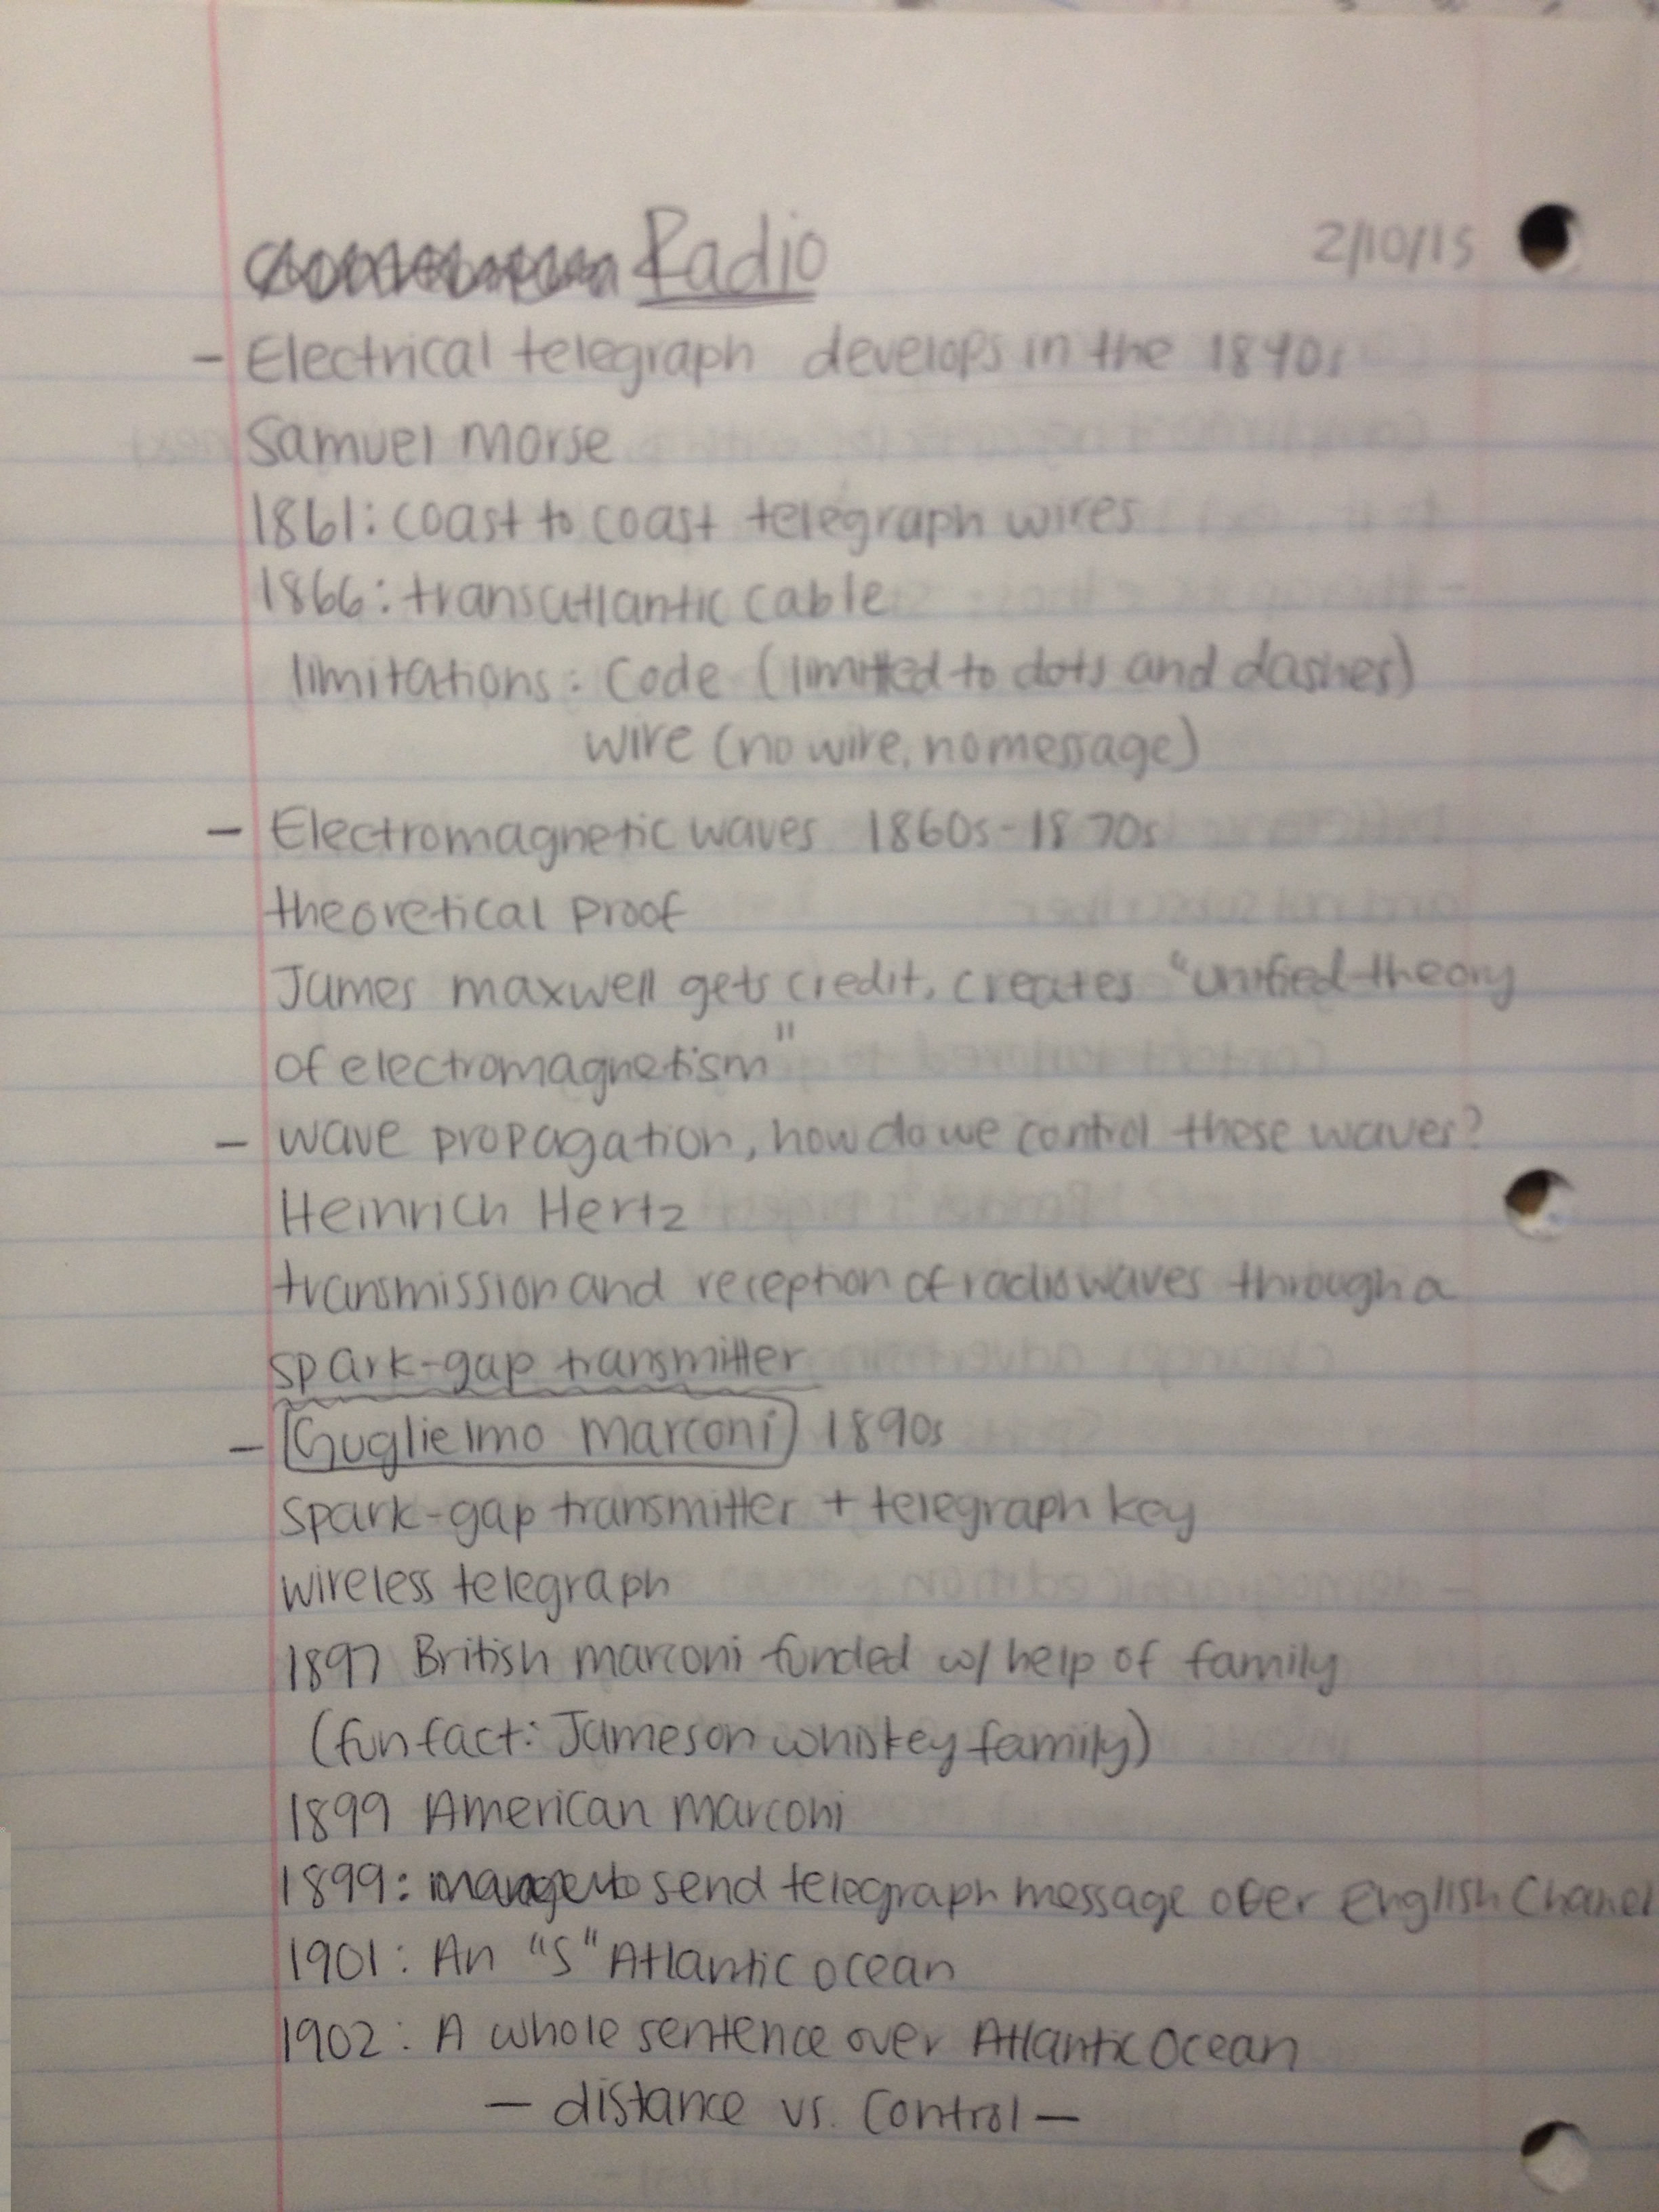 Radio 2/10/15
- Electrical telegraph develops in the 1840s
Samuel Morse
1861: coast to coast telegraph wires
1866: transatlantic cable
limitations: Code (limited to dots and dashes)
wire (no wire, no message)
- Electromagnetic waves 1860s-1870s
theoretical proof
James maxwell gets credit, creates "unified theory
of electromagnetism"
- wave propagation, how do we control these waves?
Heinrich Hertz
transmission and reception of radio waves through a
spark-gap transmitter
- Guglielmo Marconi 1890s
spark-gap transmitter + telegraph key
wireless telegraph
1897 British marconi funded w/ help of family
(fun fact: Jameson whiskey family)
1899 American marconi
1899: to send telegraph message over English Chanel
1901: An "S" Atlantic ocean
1902: A whole sentence over Atlantic Ocean
- distance vs. control -